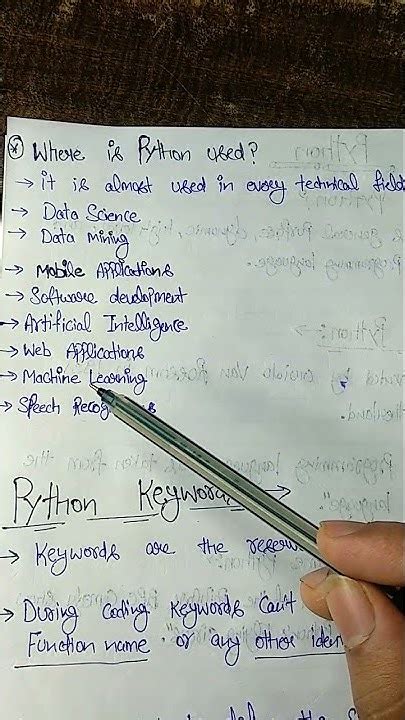 Where is Python used?
→ it is almost used in every technical field
→ Data Science
→ Data mining
→ Mobile Applications
→ Software development
→ Artificial Intelligence
→ Web Applications
→ Machine Learning
→ Speech
Python Keywords
→ Keywords are the
→ During coding Keywords can't
Function name or any other